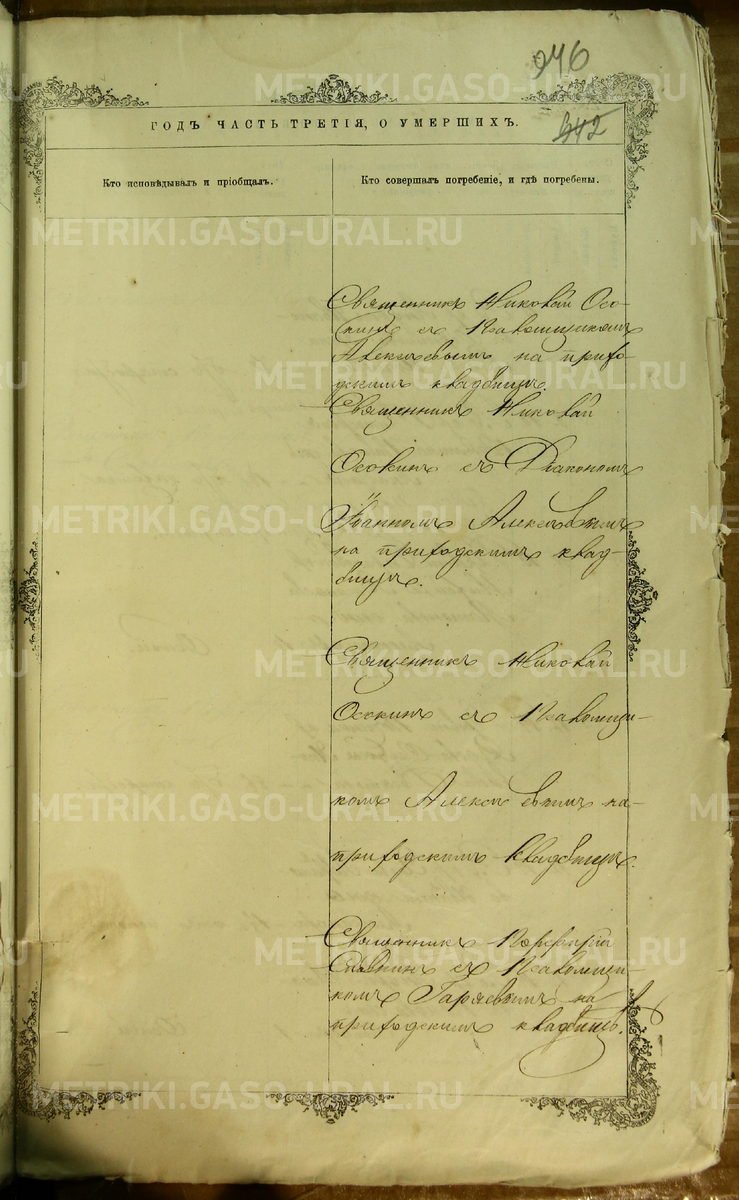 946
342
ГОДЪ ЧАСТЬ ТРЕТІЯ, О УМЕРШИХЪ.
Кто исповѣдывалъ и пріобщалъ.
Кто совершалъ погребеніе, и гдѣ погребены.
Священникъ Николай Осо-
кинъ съ Псаломщикомъ
Алексѣевымъ на прихо-
дскимъ кладбищѣ.
Священникъ Николай
Осокинъ съ Діакономъ
Іоанномъ Алексѣевымъ
на приходскимъ клад-
бищѣ.
Священникъ Николай
Осокинъ съ Псаломщи-
комъ Алексѣевымъ на
приходскимъ кладбищѣ.
Священникъ Порфирій
Славнинъ съ Псаломщи-
комъ Гаряевымъ на
приходскимъ кладбищѣ.
METRIKI.GASO-URAL.RU